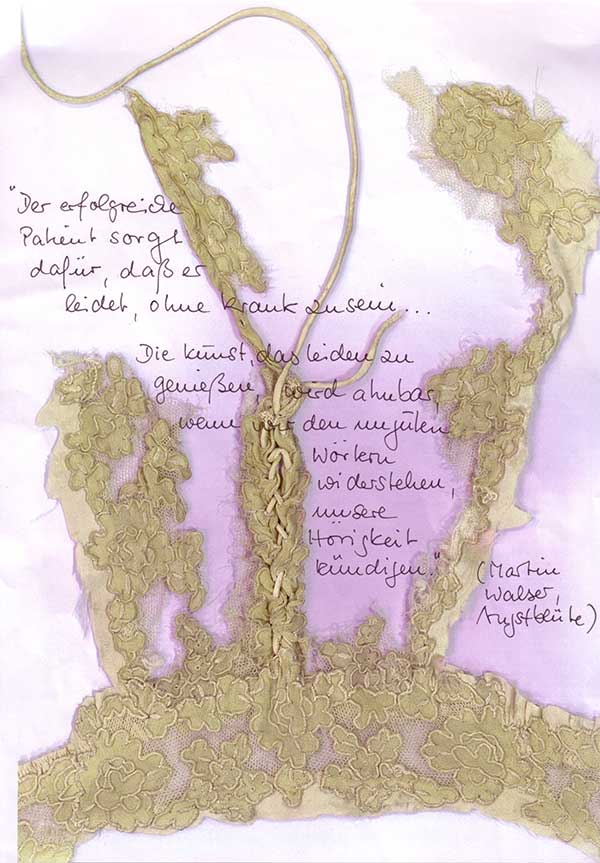 "Der erfolgreiche
Patient sorgt
dafür, daß er
leidet, ohne krank zu sein...
Die Kunst, das Leiden zu
genießen, wird ahnbar,
wenn wir den unguten
Wörtern
widerstehen,
unsere
Hörigkeit
kündigen."
(Martin
Walser,
Angstblüte)